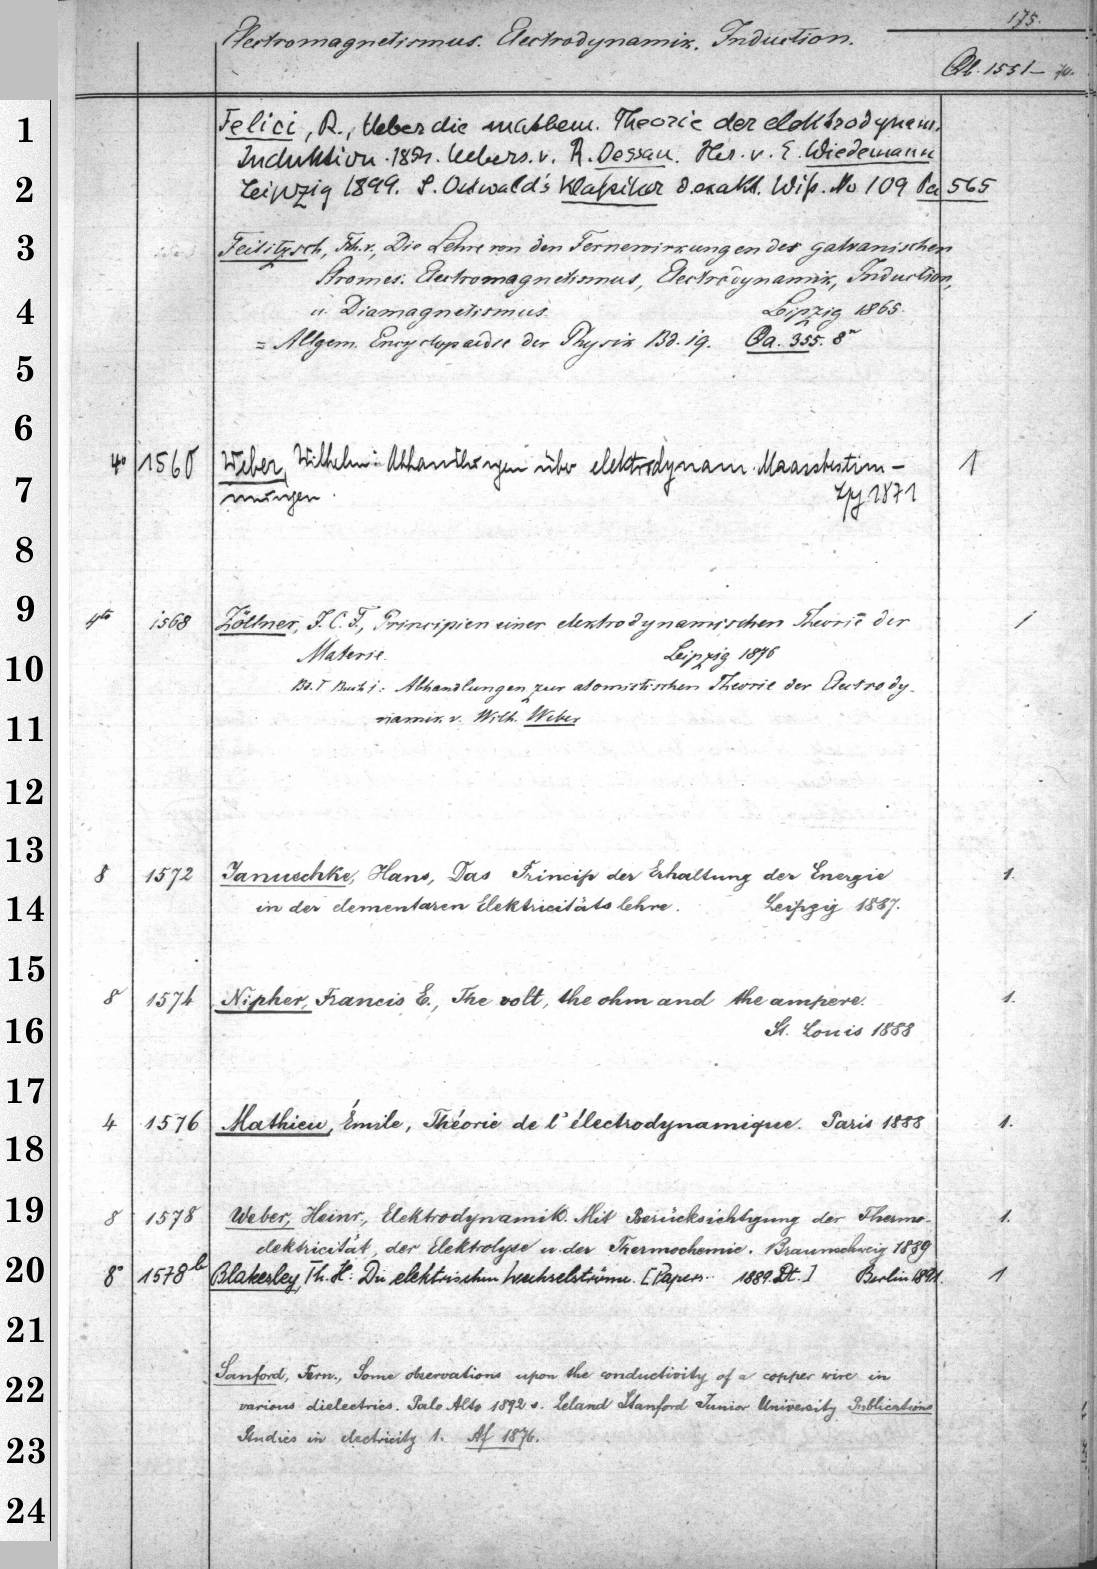 175.
Electromagnetismus. Electrodynamik. Induction.
Qb. 1551—70.
1
Felici, R., Ueber die mathem. Theorie der elektrodynam.
Induktion. 1854. Uebers. v. B. Dessau. Her. v. E. Wiedemann
2
Leipzig 1899. S. Ostwald's Klassiker d. exakt. Wiss. No 109 Pa 565
3
Feilitzsch, Frh. v., Die Lehre von den Fernewirkungen des galvanischen
Stromes. Electromagnetismus, Electrodynamik, Induction,
4
u. Diamagnetismus. Leipzig 1865.
= Allgem. Encyclopaedie der Physik Bd. 19. Qa. 355. 8°
5
6
4° 1560 Weber, Wilhelm: Abhandlungen über elektrodynam. Maassbestim- 1
7
mungen. Lpz 1871
8
9
4to 1568 Zöllner, J. C. F., Principien einer elektrodynamischen Theorie der 1
10
Materie. Leipzig 1876
Bd. I Buch 1: Abhandlungen zur atomistischen Theorie der Electrody-
11
namik v. Wilh. Weber
12
13
8 1572 Januschke, Hans, Das Princip der Erhaltung der Energie 1.
14
in der elementaren Elektricitätslehre. Leipzig 1887.
15
8 1574 Nipher, Francis E., The volt, the ohm and the ampere. 1.
16
St. Louis 1888
17
4 1576 Mathieu, Émile, Théorie de l'électrodynamique. Paris 1888 1.
18
19
8 1578 Weber, Heinr., Elektrodynamik. Mit Berücksichtigung der Thermo- 1.
elektricität, der Elektrolyse u. der Thermochemie. Braunschweig 1889
20
8° 1578b Blakesley, Th. H.: Die elektrischen Wechselströme. [Papers.. 1889. Dt.] Berlin 1891. 1
21
Sanford, Fern., Some observations upon the conductivity of a copper wire in
22
various dielectrics. Palo Alto 1892 s. Leland Stanford Junior University Publications
23
Studies in electricity 1. Af 1876.
24